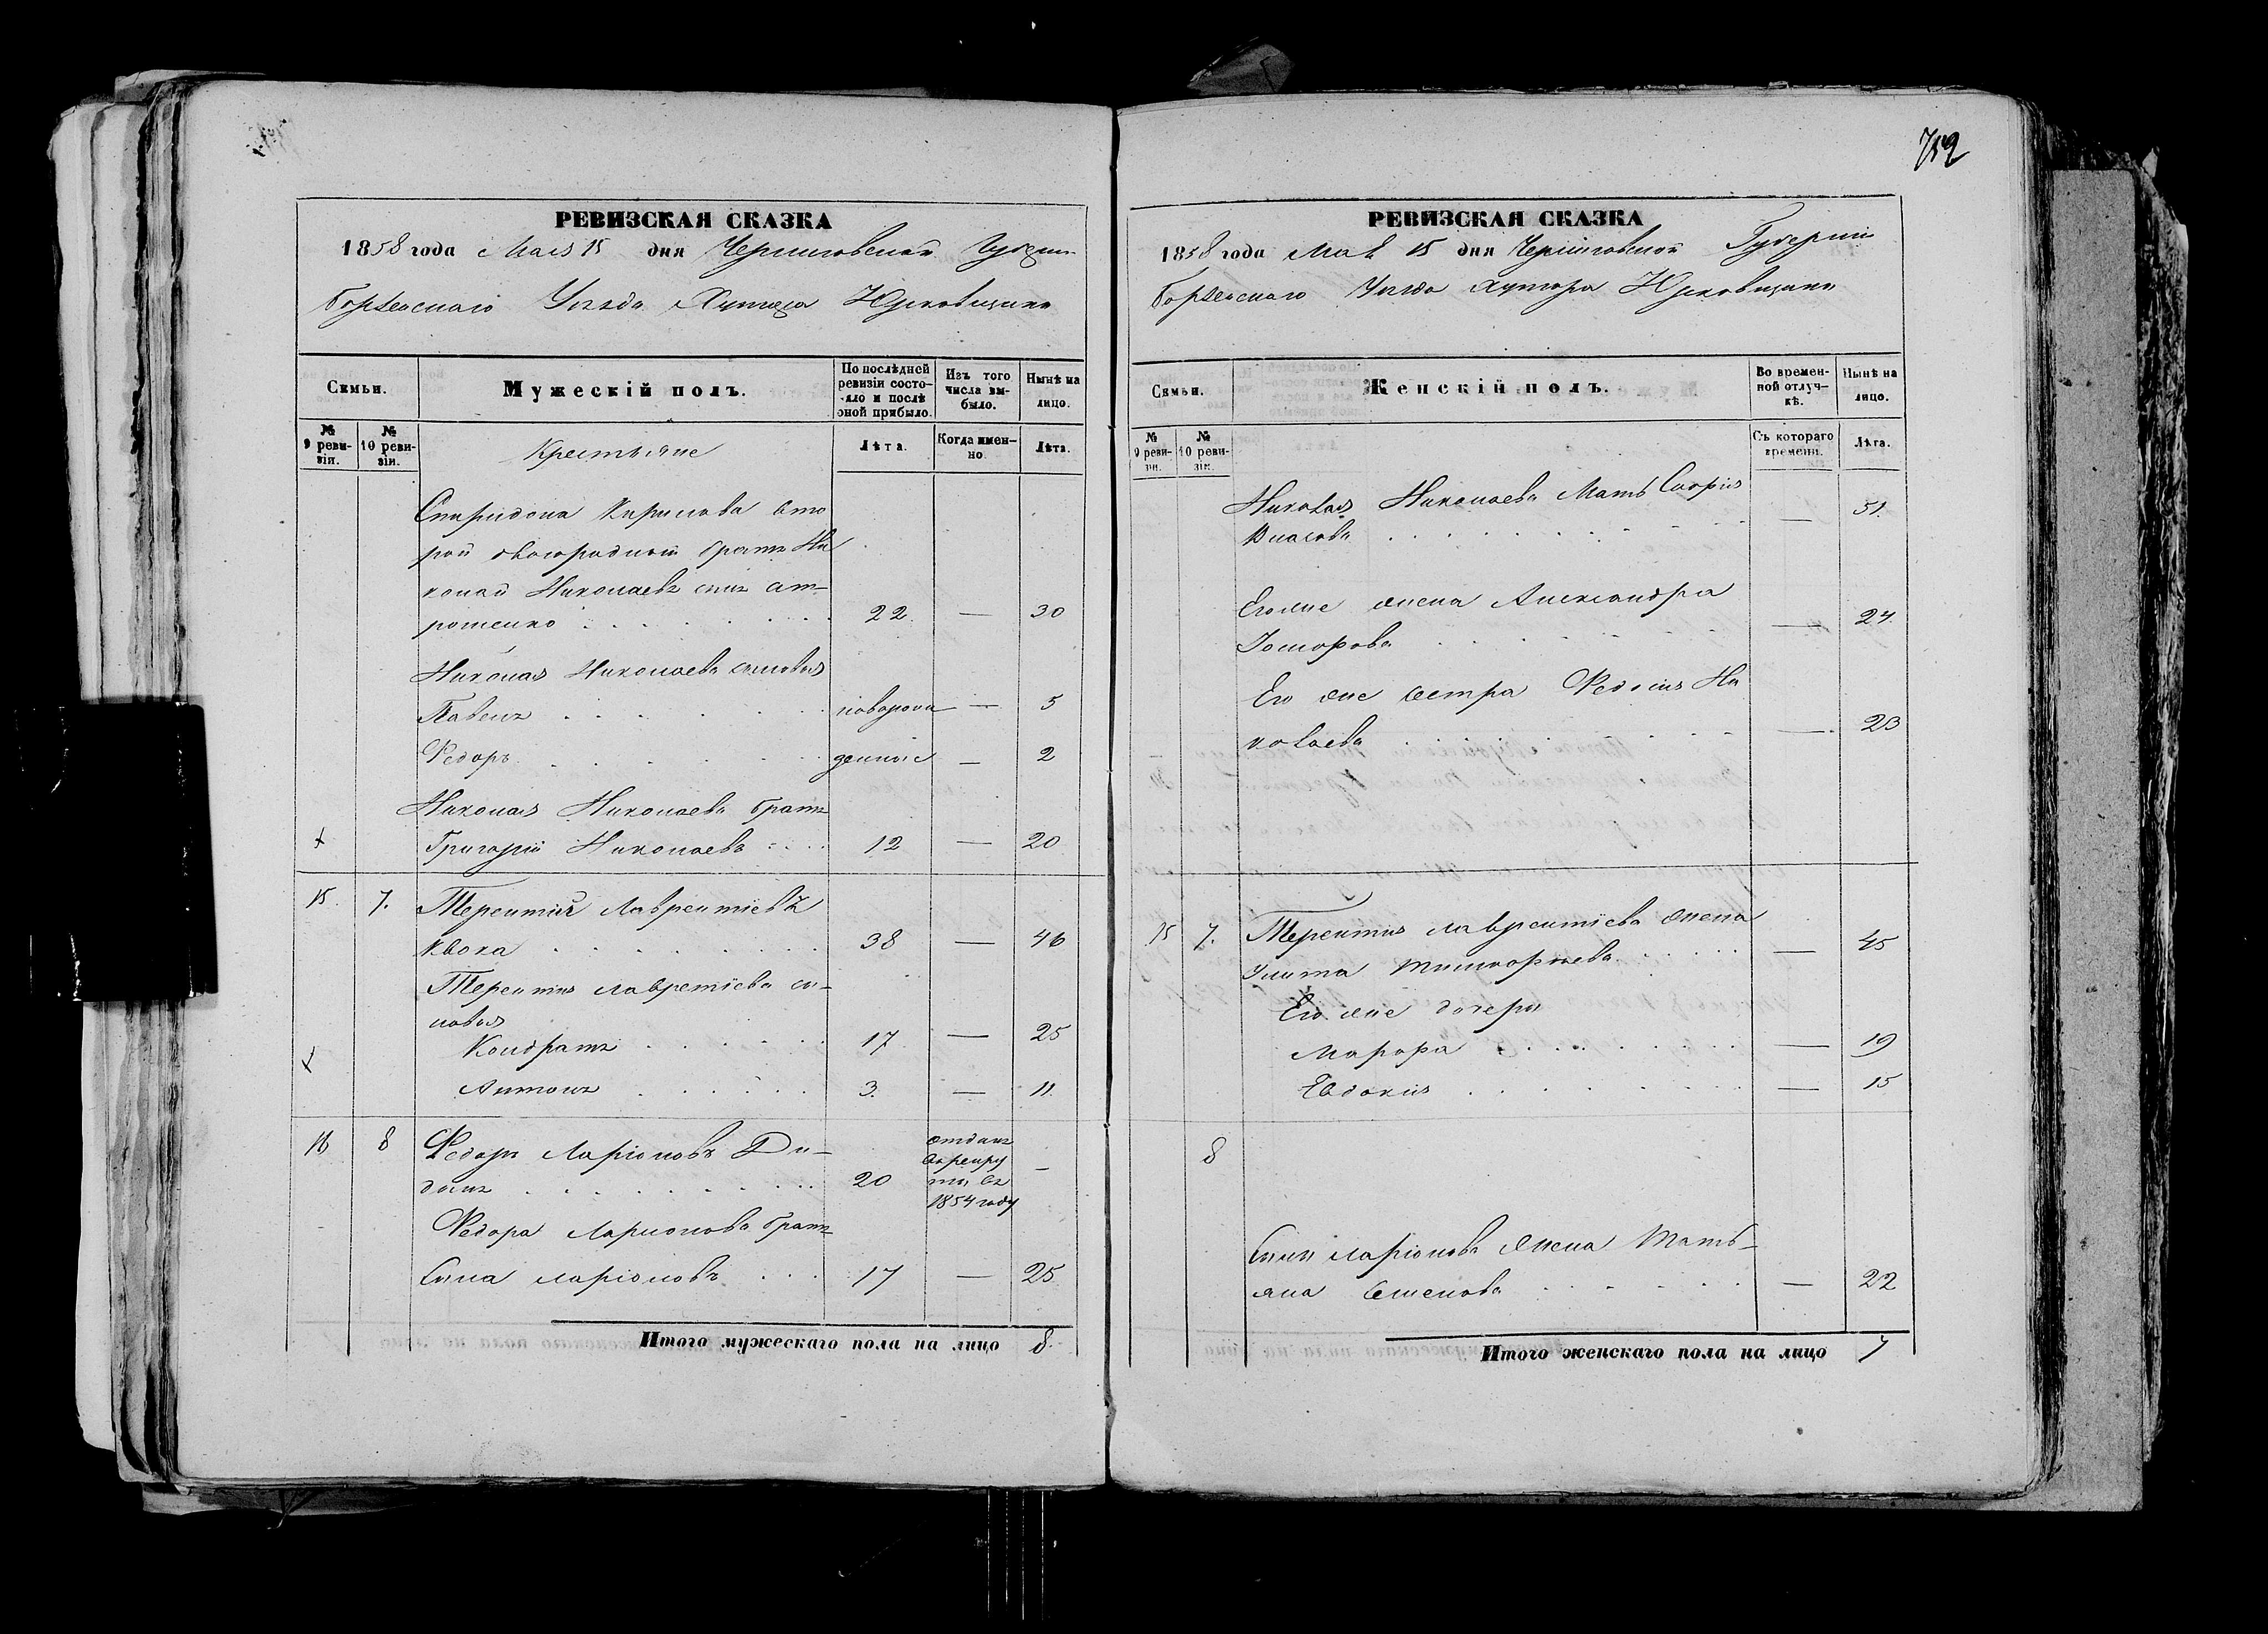 РЕВИЗСКАЯ СКАЗКА
1858 года Мая 15 дня Черниговской Губерніи
Борзенскаго Уезда Хутора Юрковщины
Семьи.
Мужескій полъ.
По послѣдней ревизіи состояло и послѣ оной прибыло.
Изъ того числа выбыло.
Нынѣ на лицо.
№ 9 ревизіи.
№ 10 ревизіи.
Крестьяне
Лѣта.
Когда именно.
Лѣта.
Спиридона Кирилова вто
рой двоюродный братъ Ни
колай Николаевъ сынъ
22 — 30
Николая Николаева сыновья
Павелъ новорож — 5
Федоръ денные — 2
Николая Николаева братъ
х Григорій Николаевъ 12 — 20
15. 7. Терентий Лаврентіевъ
Квока 38 — 46
Терентия Лавретіева сы-
новья
Кондратъ 17 — 25
х Антонъ 3. — 11.
16 8 Федоръ Ларіоновъ Ди-
данъ 20 отданъ в рекруты въ 1854 году —
Федора Ларионова братъ
Сила Ларіоновъ 17 — 25
Итого мужескаго пола на лицо 8.
752
РЕВИЗСКАЯ СКАЗКА
1858 года Мая 15 дня Черниговской Губерніи
Борзенскаго Уезда Хутора Юрковщины
Семьи.
Женскій полъ.
Во временной отлучкѣ.
Нынѣ на лицо.
№ 9 ревизіи.
№ 10 ревизіи.
Съ котораго времени.
Лѣта.
Николая Николаева Мать Софія
Власова — 51.
Его же жена Александра
— 24.
Его же сестра Федосия Ни
колаева — 23
15 7. Терентия Лаврентіева жена
Улита — 45
Его же дочери
Марфа — 19
Евдокия — 15
8
Силы Ларіонова жена Тать-
яна Семенова — 22
Итого женскаго пола на лицо 7